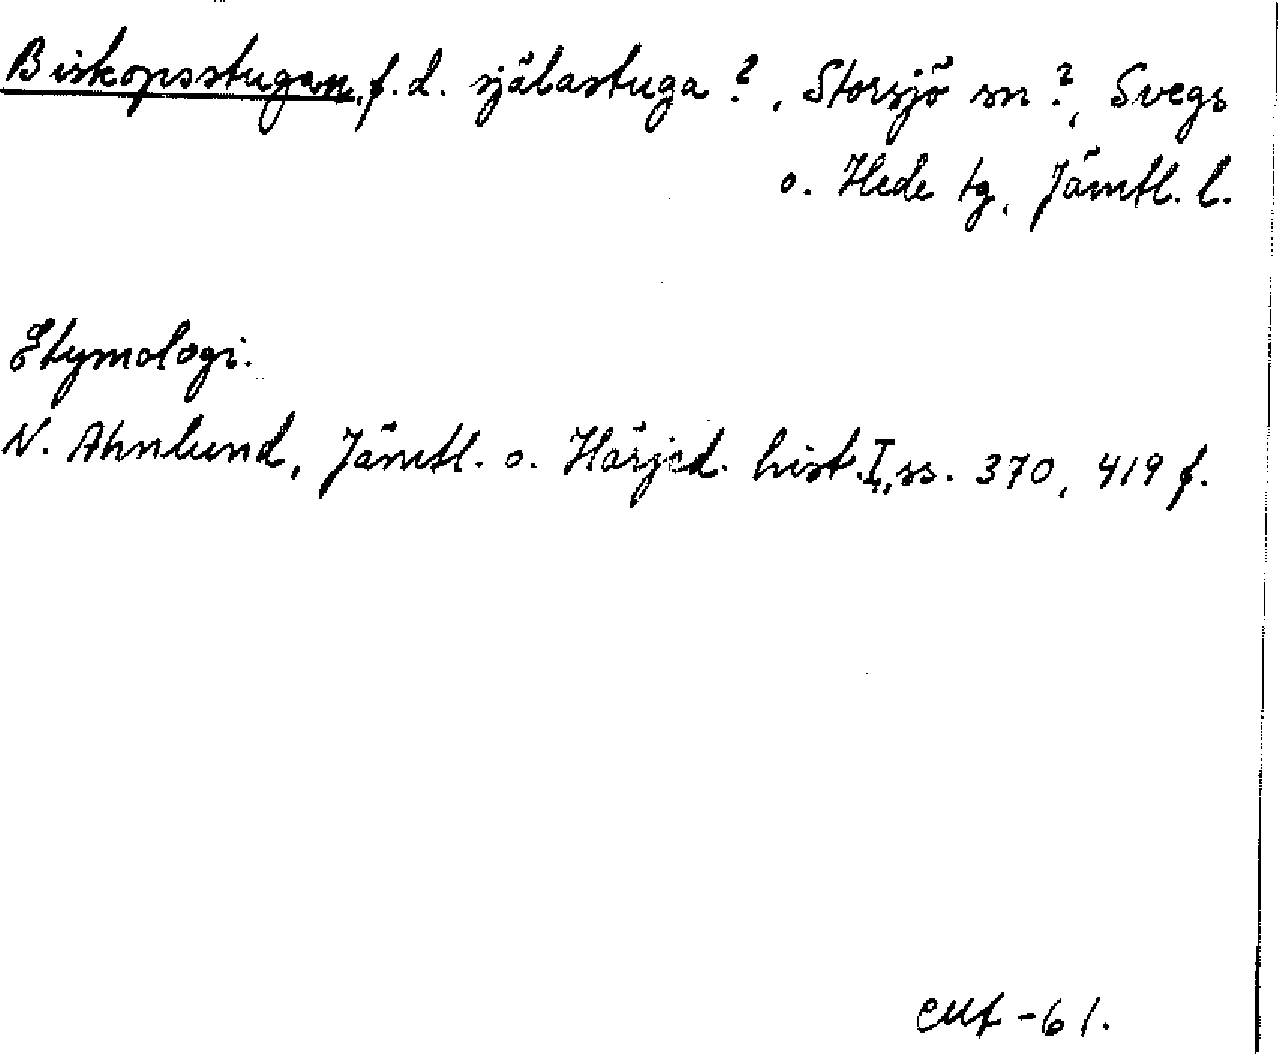 Biskopsstugan, f.d. själastuga?, Storsjö sn?, Svegs
o. Hede tg, Jämtl. l.
Etymologi.
N. Ahnlund, Jämtl. o. Härjed. hist. I, ss. 370, 419 f.
CMf -61.